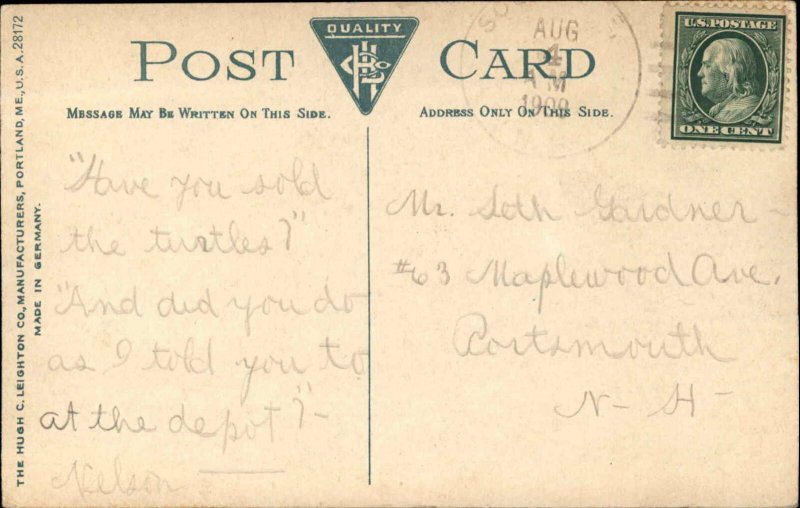 THE HUGH C. LEIGHTON CO., MANUFACTURERS, PORTLAND, ME., U.S.A. 28172
MADE IN GERMANY.
QUALITY
POST CARD
MESSAGE MAY BE WRITTEN ON THIS SIDE.
ADDRESS ONLY ON THIS SIDE.
AUG
4
AM
1909
U.S. POSTAGE
ONE CENT
"Have you sold
the turtles?"
"And did you do
as I told you to
at the depot?"-
Nelson
Mr. Seth Gardner-
#63 Maplewood Ave.
Portsmouth
N- H-